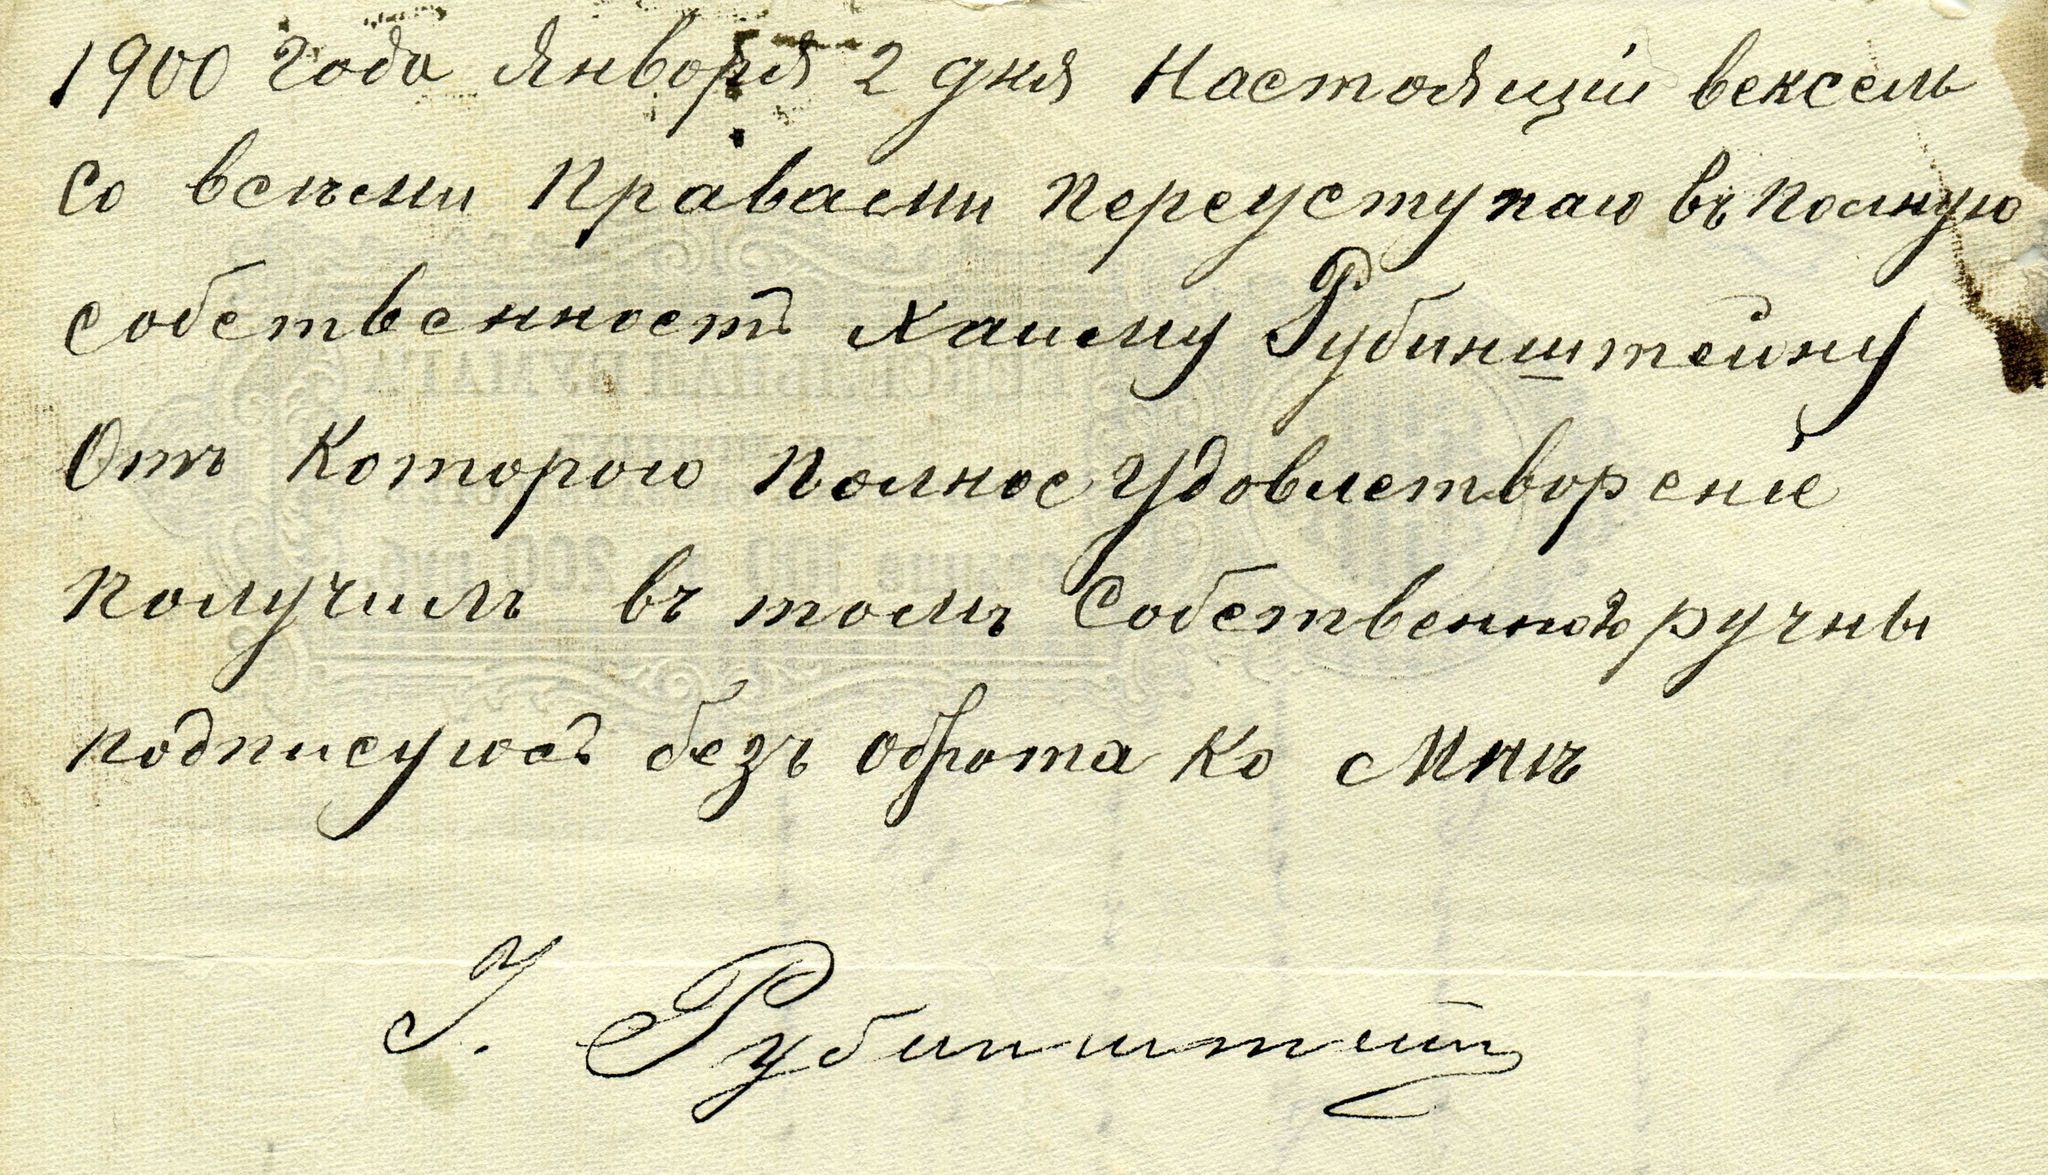 1900 года Января 2 дня Настоящій вексель
Со всѣми Правами переуступаю въ полную
собственность Хаиму Рубинштейну
Отъ Которого полное Удовлетвореніе
получилъ въ томъ Собственноручны
подписуюсь безъ оборота Ко Мнѣ
І. Рубинштейн